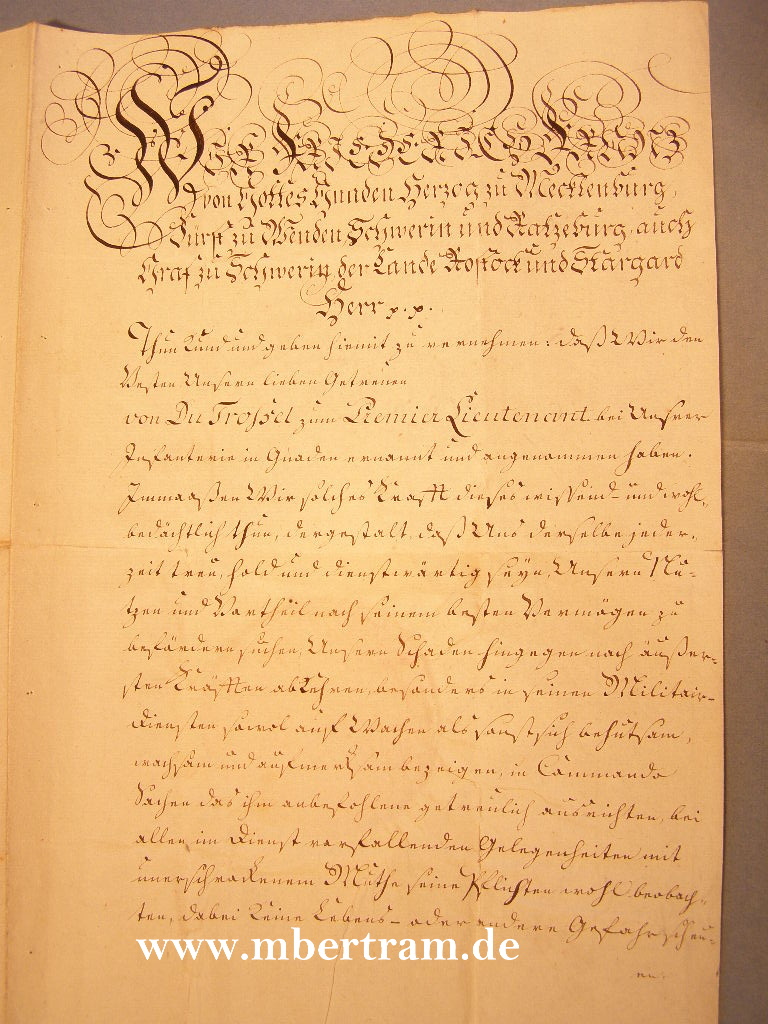 Wir Friederich Franz
von Gottes Gnaden Herzog zu Mecklenburg,
Fürst zu Wenden, Schwerin und Ratzeburg, auch
Graf zu Schwerin, der Lande Rostock und Stargard
Herr p. p.
Thun kund und geben hiemit zu vernehmen: daß Wir den
Vesten Unsern lieben Getreuen
von Du Trossel zum Premier Lieutenant bei Unsrer
Infanterie in Gnaden ernannt und angenommen haben.
Immaaßen Wir solches Krafft dieses wissend- und wohl-
bedächtlich thun, dergestalt, daß Uns derselbe jeder-
zeit treu, hold und dienstwärtig seyn, Unsern Nu-
tzen und Vortheil nach seinem besten Vermögen zu
befördern suchen, Unsern Schaden hingegen nach äußer-
sten Kräfften abkehren, besonders in seinen Militair-
Diensten sowol auf Wachen als sonst sich behutsam,
wachsam und aufmerksam bezeigen, in Commando
Sachen das ihm anbefohlene getreulich ausrichten, bei
allen im Dienst vorfallenden Gelegenheiten mit
unerschrockenem Muthe seine Pflichten wohl beobach-
ten, dabei keine Lebens- oder andere Gefahr scheu-
en.
www.mbertram.de